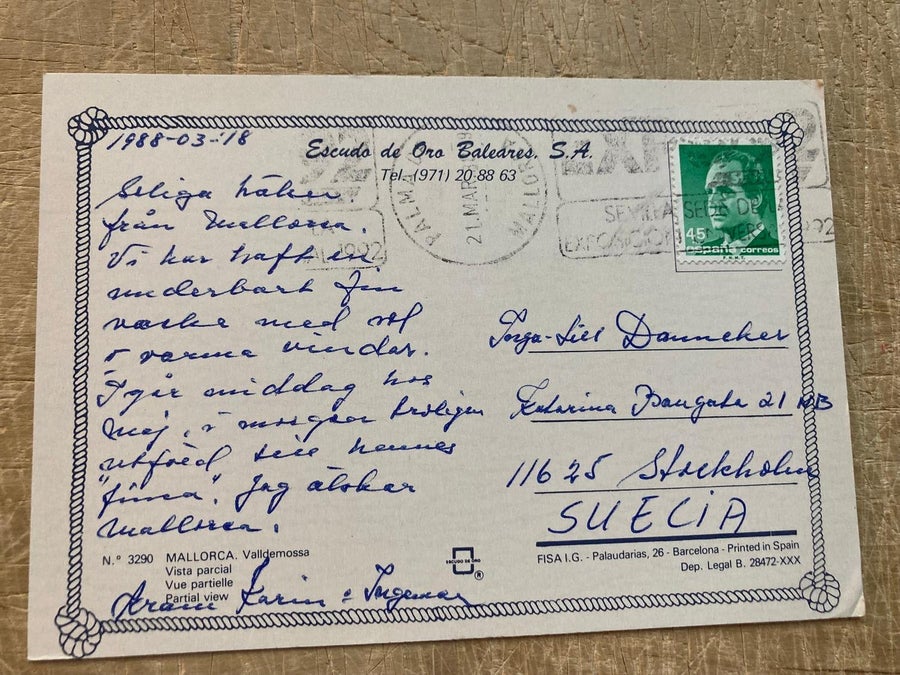 1988-03-18
Escudo de Oro Baleares, S.A.
Tel. (971) 20 88 63
PALMA MALLORCA
21 MAR
1992
SEVILLA SEDE DE
EXPOSICION
45
españa correos
F.N.M.T.
Soliga
från Mallorca.
Vi har haft en
underbart fin
vecka med sol
o varma vindar.
Igår middag hos
Maj, i morgon troligen
utfärd till hennes
"finca". Jag älskar
Mallorca.
Kram Karin o Ingemar
Inga-Lill Dannecker
Katarina Bangata 21 NB
11625 Stockholm
SUECIA
N.º 3290 MALLORCA. Valldemossa
Vista parcial
Vue partielle
Partial view
ESCUDO DE ORO
®
FISA I.G. - Palaudarias, 26 - Barcelona - Printed in Spain
Dep. Legal B. 28472-XXX